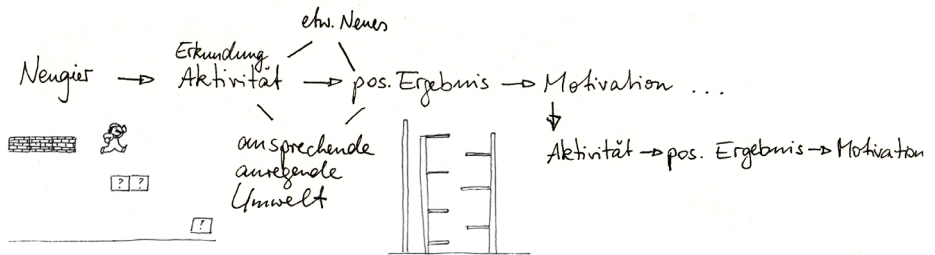 etw. Neues
Erkundung
Neugier → Aktivität → pos. Ergebnis → Motivation ...
ansprechende
anregende
Umwelt
Aktivität → pos. Ergebnis → Motivation
? ?
?